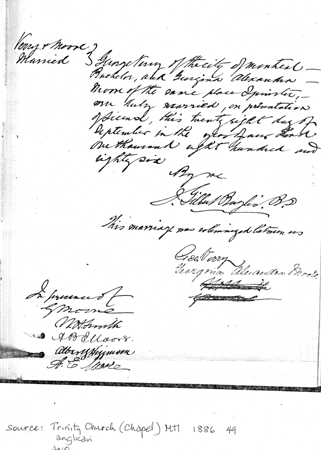 Perry & Moore
Married
George Perry of the city of Montreal
Bachelor, and Georgina Alexandra
Moore of the same place Spinster,
were duly married, on presentation
of license, this twenty eight day of
September in the year of our Lord
one thousand eight hundred and
eighty six
By me
J. Gilbert Baylis B.D
This marriage was solemnized between us
Geo Perry
Georgina Alexandra Moore
In presence of
Moore
Smith
A B E Moore
A. E. Moore
source: Trinity Church (Chapel) MTl 1886 49
anglican